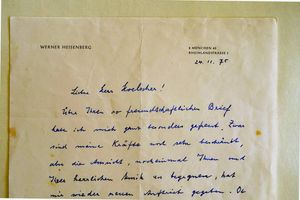 WERNER HEISENBERG
8 MÜNCHEN 40
RHEINLANDSTRASSE 1
24. 11. 75
Lieber Herr
Über Ihren so freundschaftlichen Brief
habe ich mich ganz besonders gefreut. Zwar
sind meine Kräfte noch sehr beschränkt,
aber die Aussicht, noch einmal Ihnen und
Ihrer herrlichen Musik zu begegnen, hat
mir wieder neuen Auftrieb gegeben. Ob